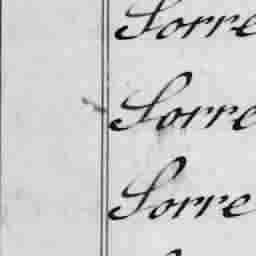 Sorre
Sorre
Sorre